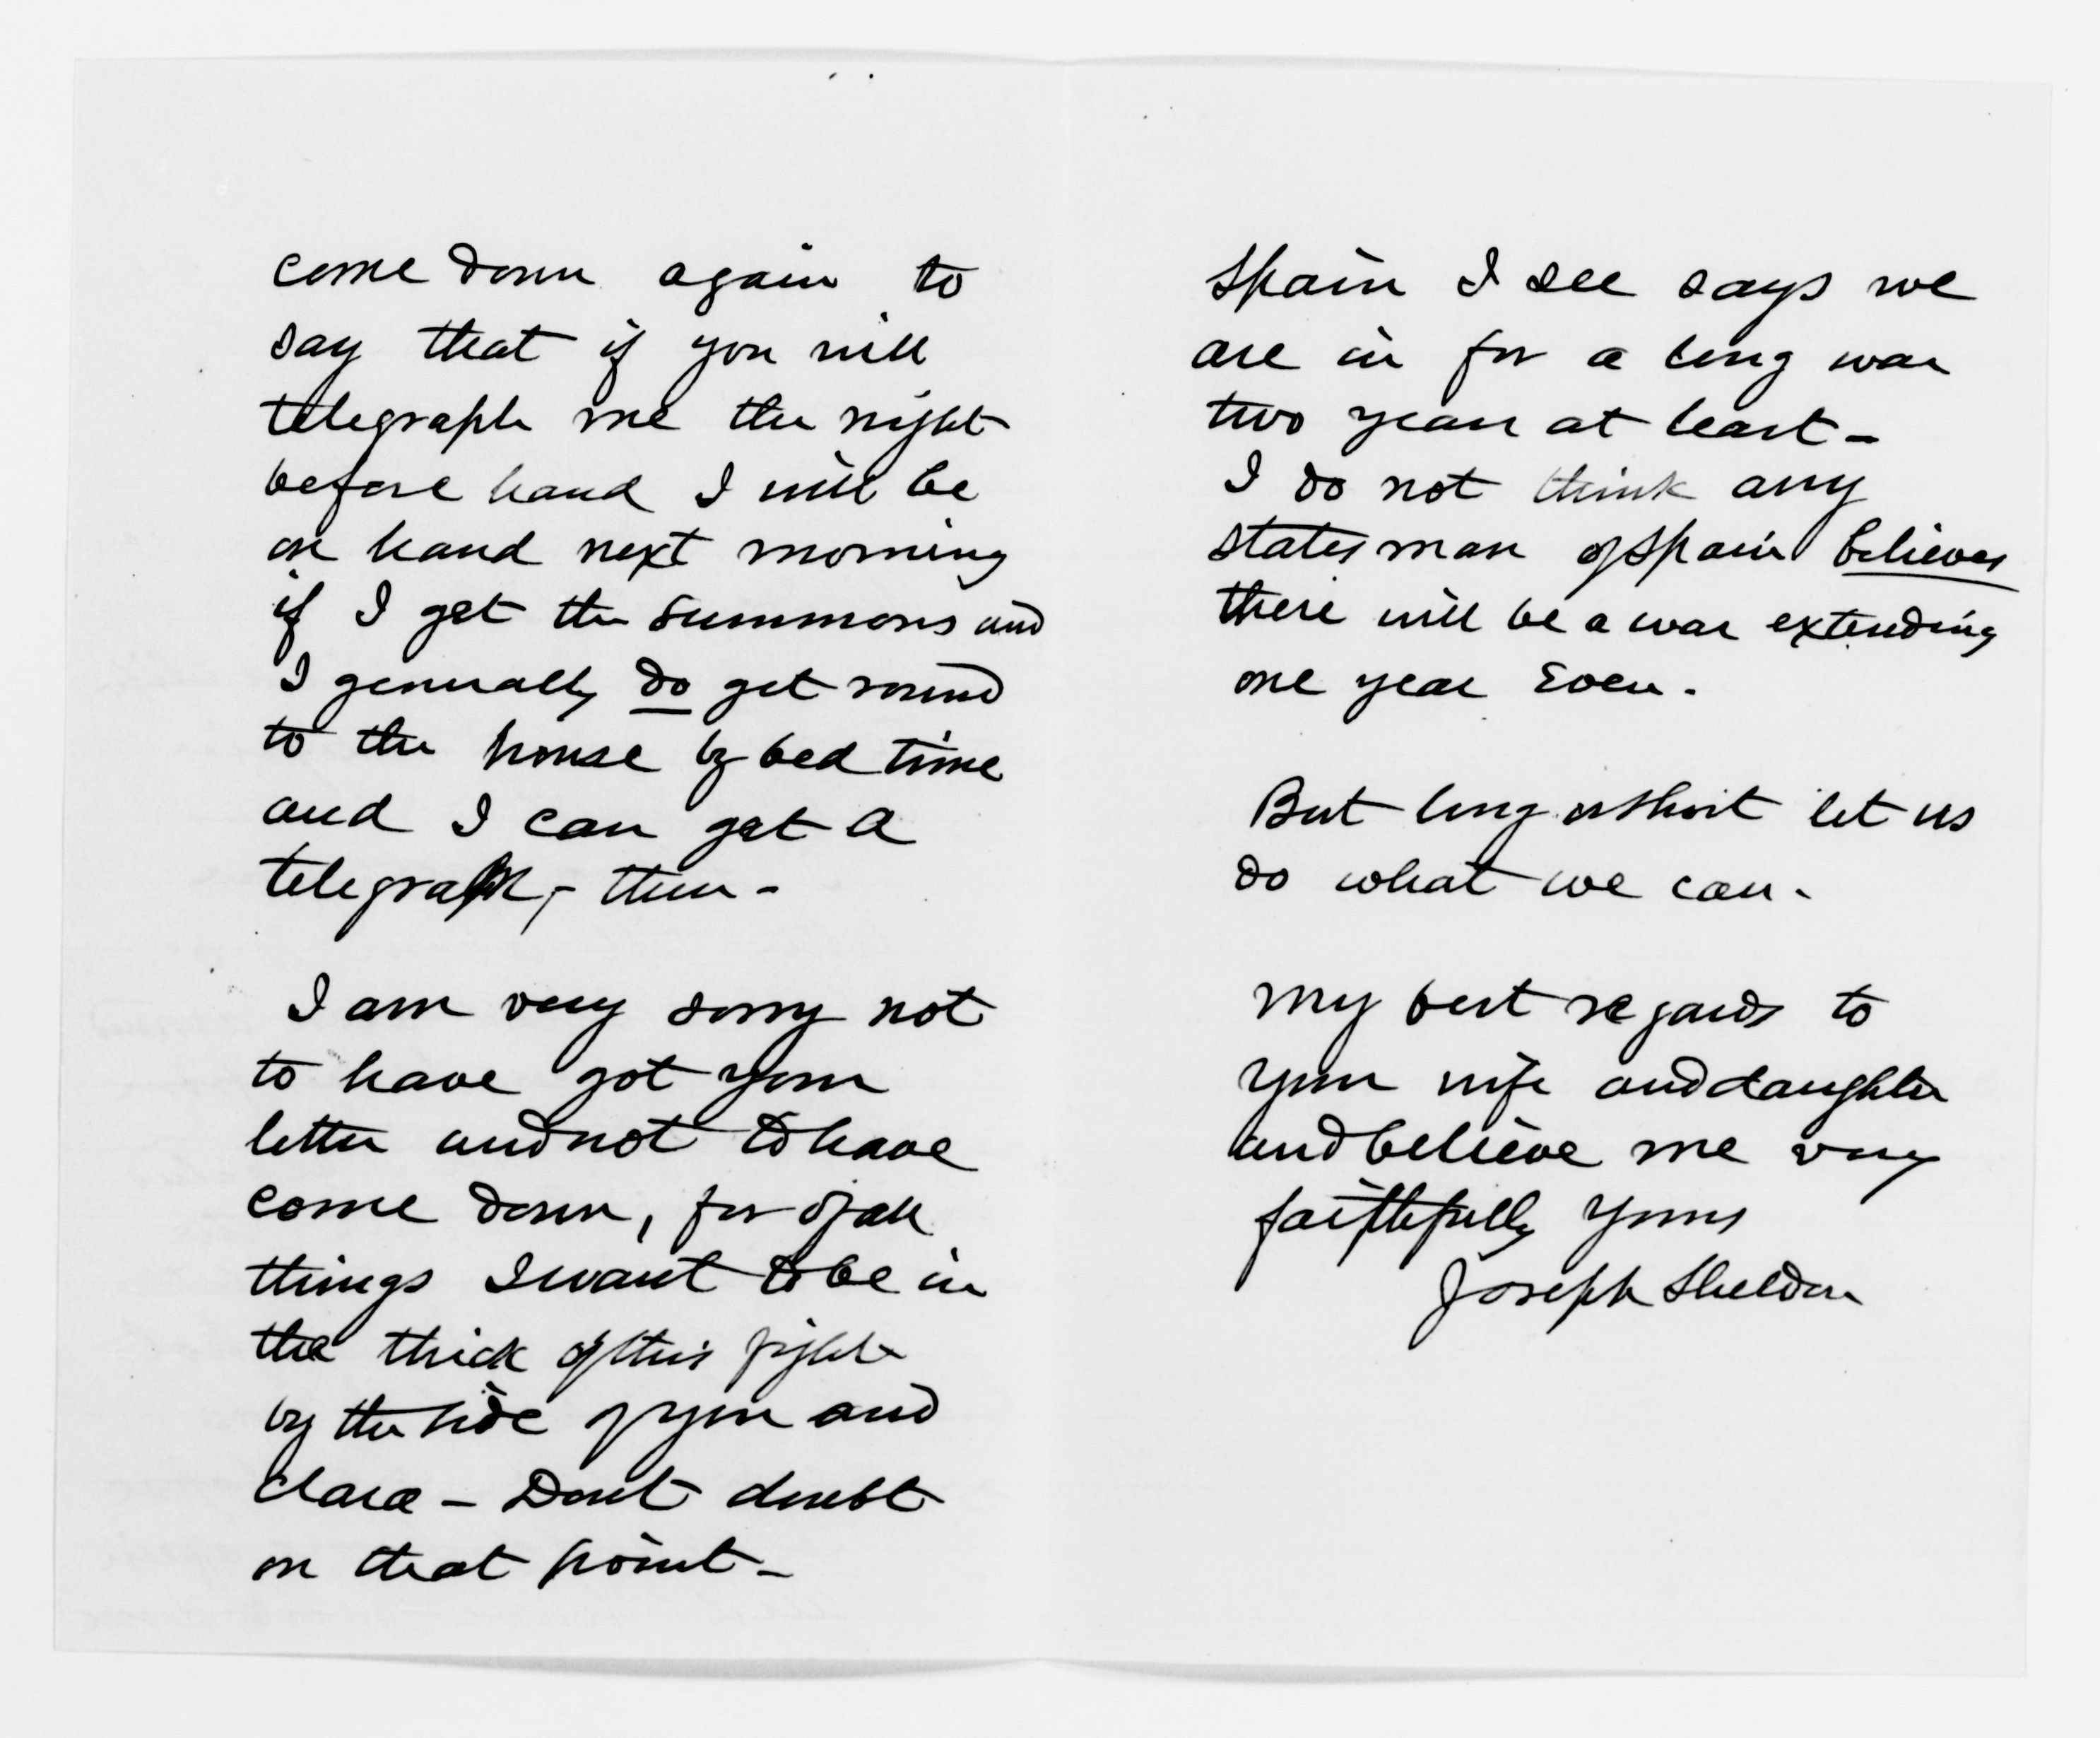 come down again to
say that if you will
telegraph me the night
before hand I will be
on hand next morning
if I get the summons and
I generally do get round
to the house by bed time
and I can get a
telegraph, - then -
I am very sorry not
to have got your
letter and not to have
come down, for of all
things I want to be in
the thick of this fight
by the side of you and
Clara - Dont doubt
on that point -
Spain I see says we
are in for a long war
two years at least -
I do not think any
statesman of Spain believes
there will be a war extending
one year even.
But long or short let us
do what we can.
My best regards to
your wife and daughter
and believe me very
faithfully yours
Joseph Sheldon